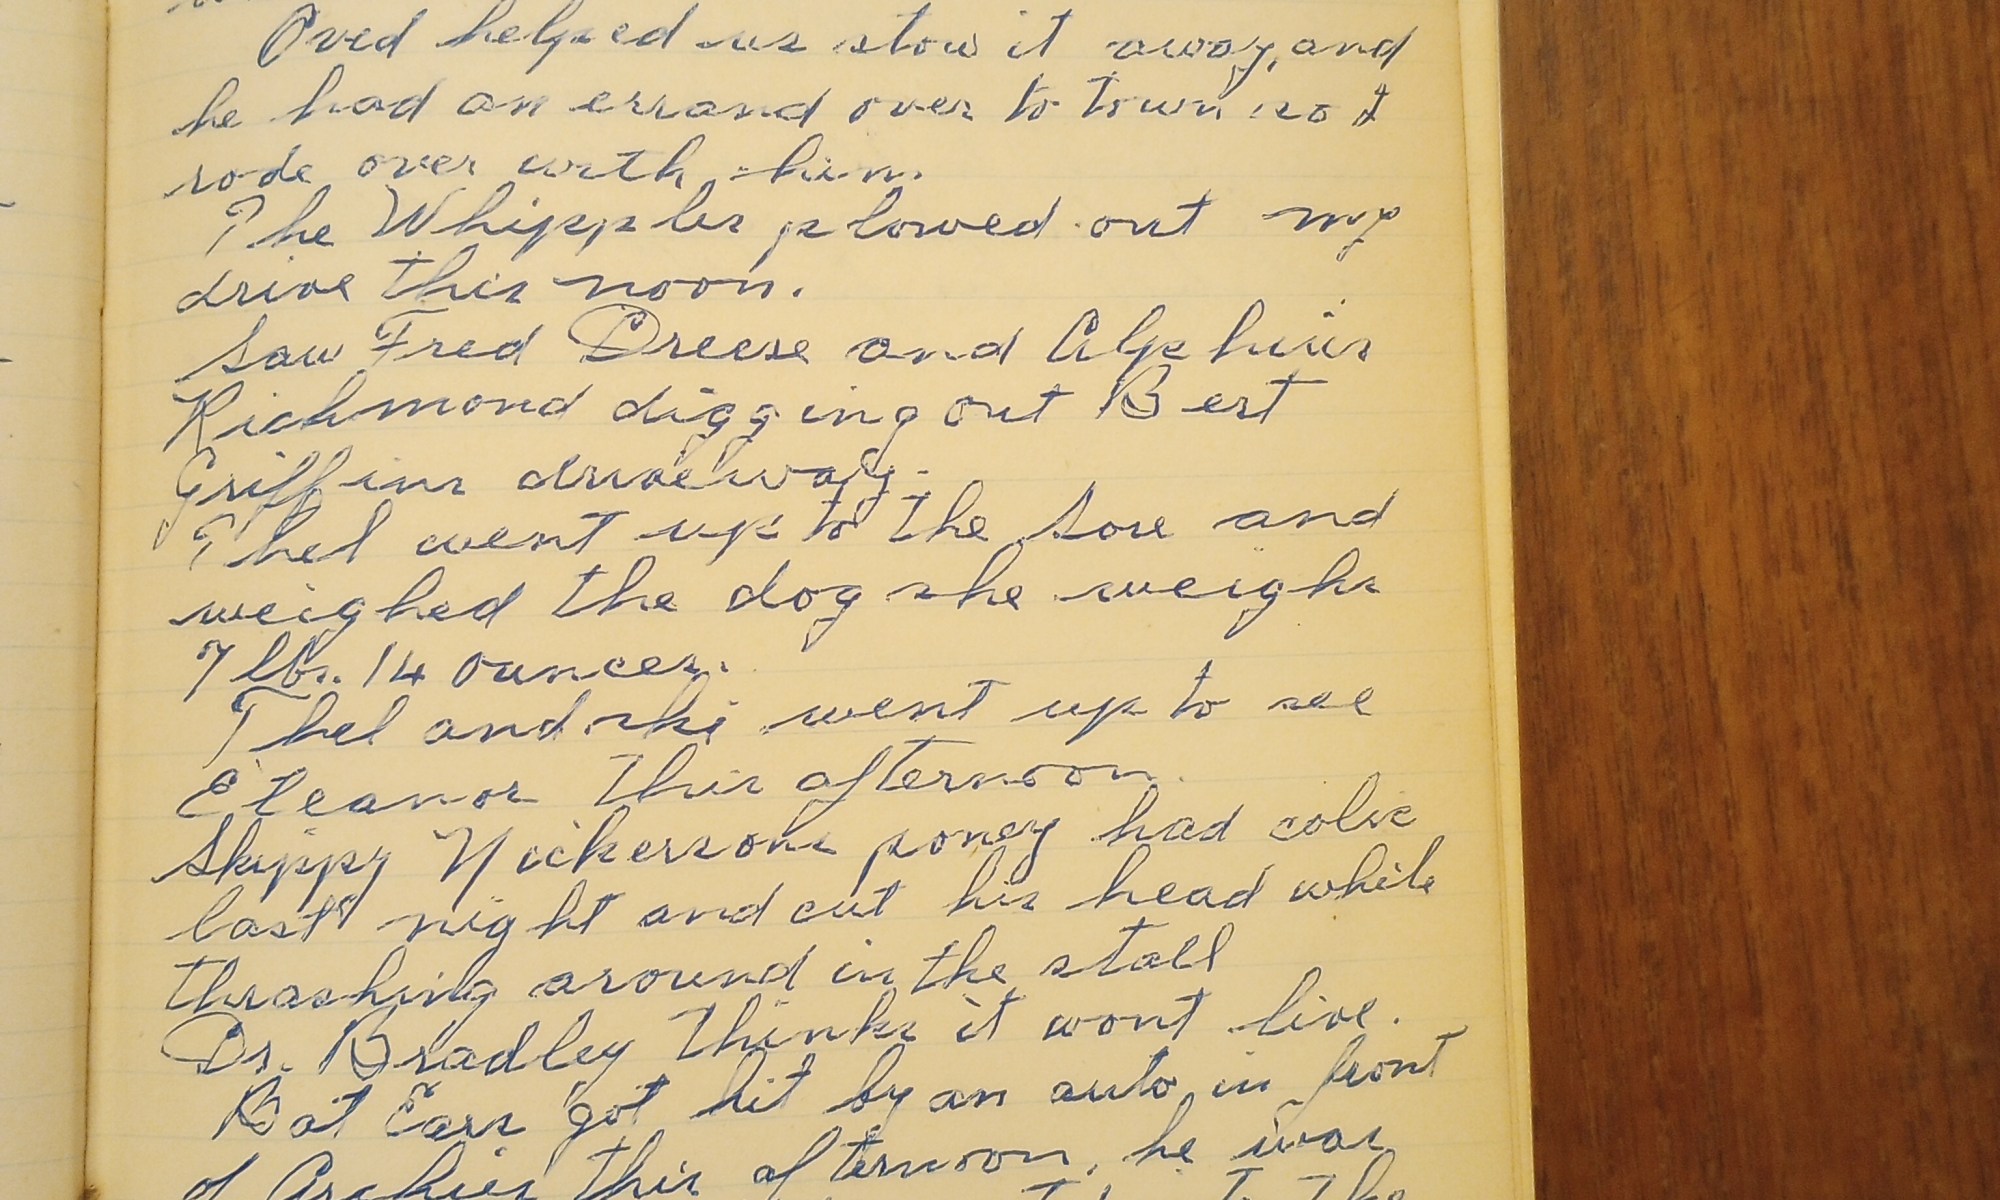 Oved helped us stow it away, and
he had an errand over to town so I
rode over with him.
The Whipples plowed out my
drive this noon.
Saw Fred Dreese and Alpheus
Richmond digging out Bert
Griffins driveway.
Thel went up to the Sore and
weighed the dog she weighs
7 lbs. 14 ounces.
Thel and ski went up to see
Eleanor this afternoon.
Skippy Nickersons poney had colic
last night and cut his head while
thrashing around in the stall
Dr. Bradley thinks it wont live.
Bat Ears got hit by an auto in front
of Archies this afternoon, he was
to the